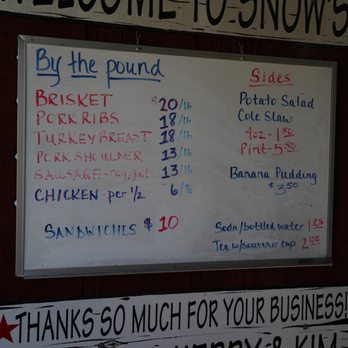 WELCOME TO SNOW'S
By the pound
BRISKET $20/lb
PORK RIBS 18/lb
TURKEY BREAST 18/lb
PORK SHOULDER 13/lb
SAUSAGE 13/lb
CHICKEN per 1/2 6 1/2
SANDWICHES $10
Sides
Potato Salad
Cole Slaw
4oz - 1.50
Pint - 5.50
Banana Pudding
$3.50
Soda/bottled water 1.25
Tea w/souvenir cup 2.00
THANKS SO MUCH FOR YOUR BUSINESS!
KERRY & KIM